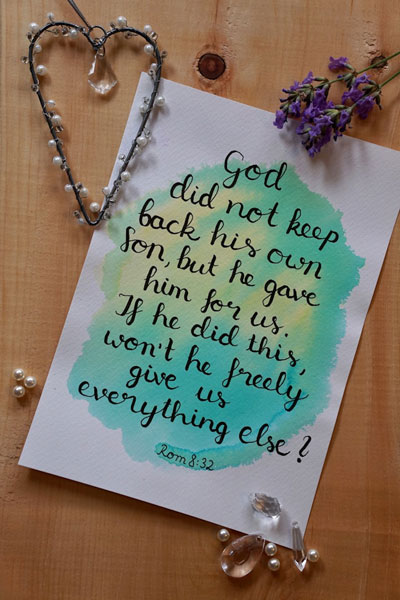 God
did not keep
back his own
Son, but he gave
him for us.
If he did this,
won't he freely
give us
everything else?
Rom 8:32